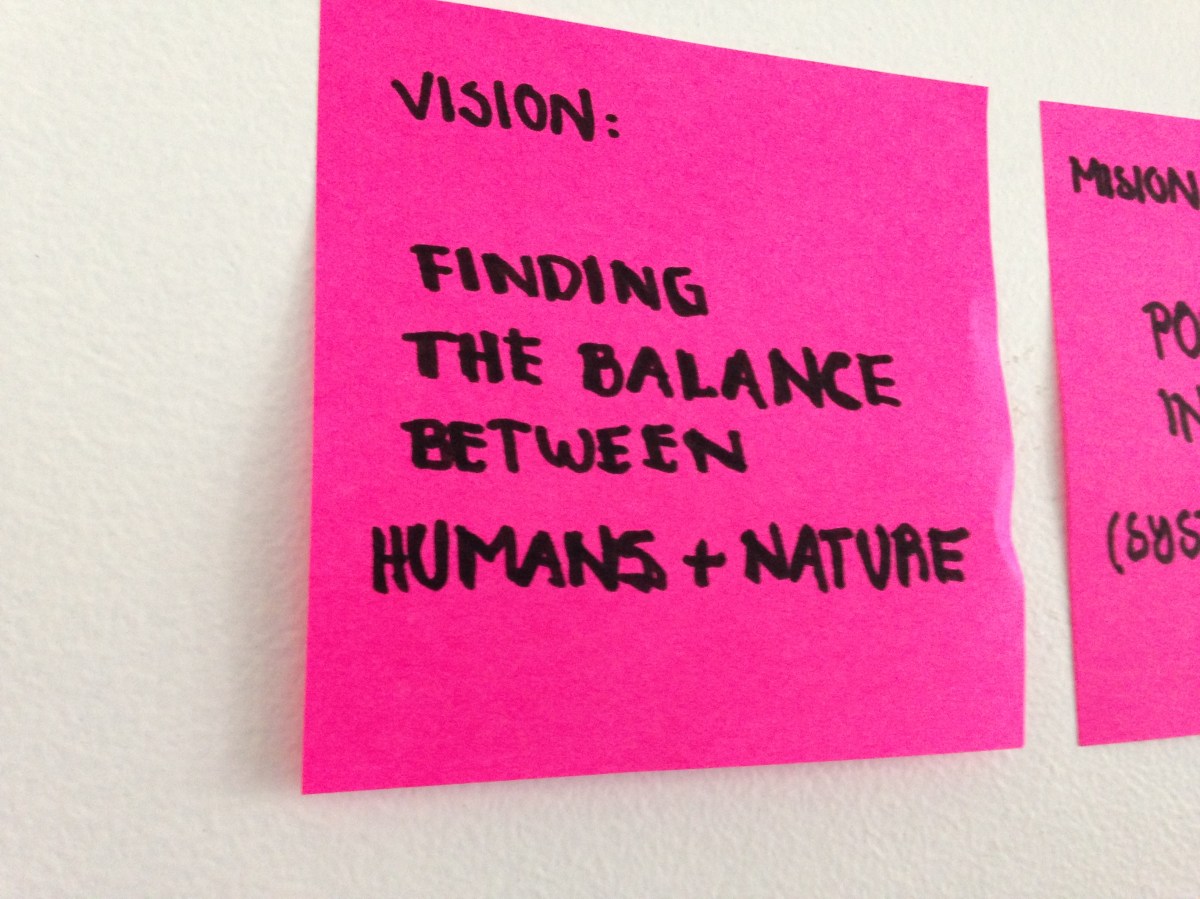 VISION:
FINDING
THE BALANCE
BETWEEN
HUMANS + NATURE
MISION